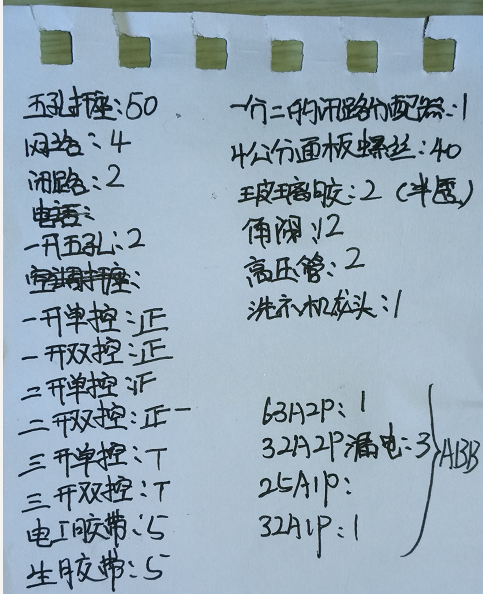 五孔插座:50
网络:4
闭路:2
电话:
一开五孔:2
空调插座:
一开单控:正
一开双控:正
二开单控:正
二开双控:正一
三开单控:T
三开双控:T
电工胶带:5
生胶带:5
一分二的闭路分配器:1
4公分面板螺丝:40
玻璃胶:2(半透)
角阀:12
高压管:2
洗衣机龙头:1
63A2P:1
32A2P漏电:3
25A1P:
32A1P:1
ABB